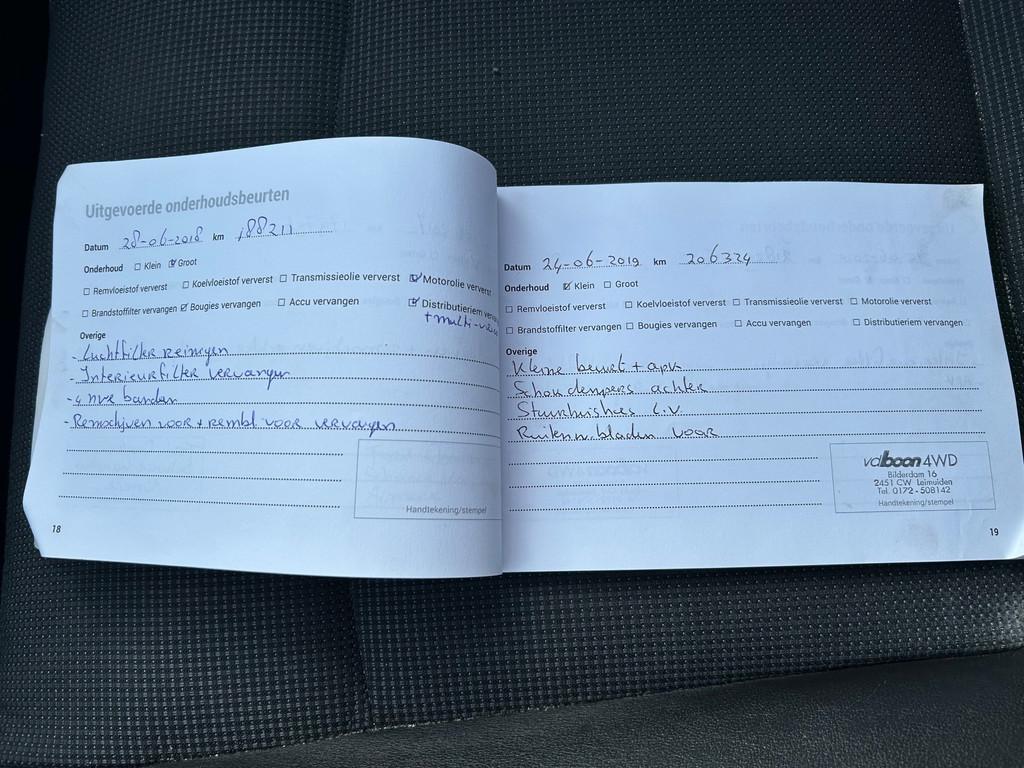 Uitgevoerde onderhoudsbeurten
Datum 28-06-2018 km 188211
Onderhoud ☐ Klein ☑ Groot
☐ Remvloeistof ververst ☐ Koelvloeistof ververst ☐ Transmissieolie ververst ☑ Motorolie ververst
☐ Brandstoffilter vervangen ☑ Bougies vervangen ☐ Accu vervangen ☑ Distributieriem verva
+ multi-
Overige
- Luchtfilter reinigen
- Interieurfilter vervangen
- 4 nwe banden
- Remschijven voor + rembl voor vervangen
Handtekening/stempel
18
Datum 24-06-2019 km 206324
Onderhoud ☑ Klein ☐ Groot
☐ Remvloeistof ververst ☐ Koelvloeistof ververst ☐ Transmissieolie ververst ☐ Motorolie ververst
☐ Brandstoffilter vervangen ☐ Bougies vervangen ☐ Accu vervangen ☐ Distributieriem vervangen
Overige
Kleine beurt + apk
Schokdempers achter
Stuurhuishoes L.V.
Ruitenw. bladen voor
valboon 4WD
Bilderdam 16
2451 CW Leimuiden
Tel. 0172-508142
Handtekening/stempel
19